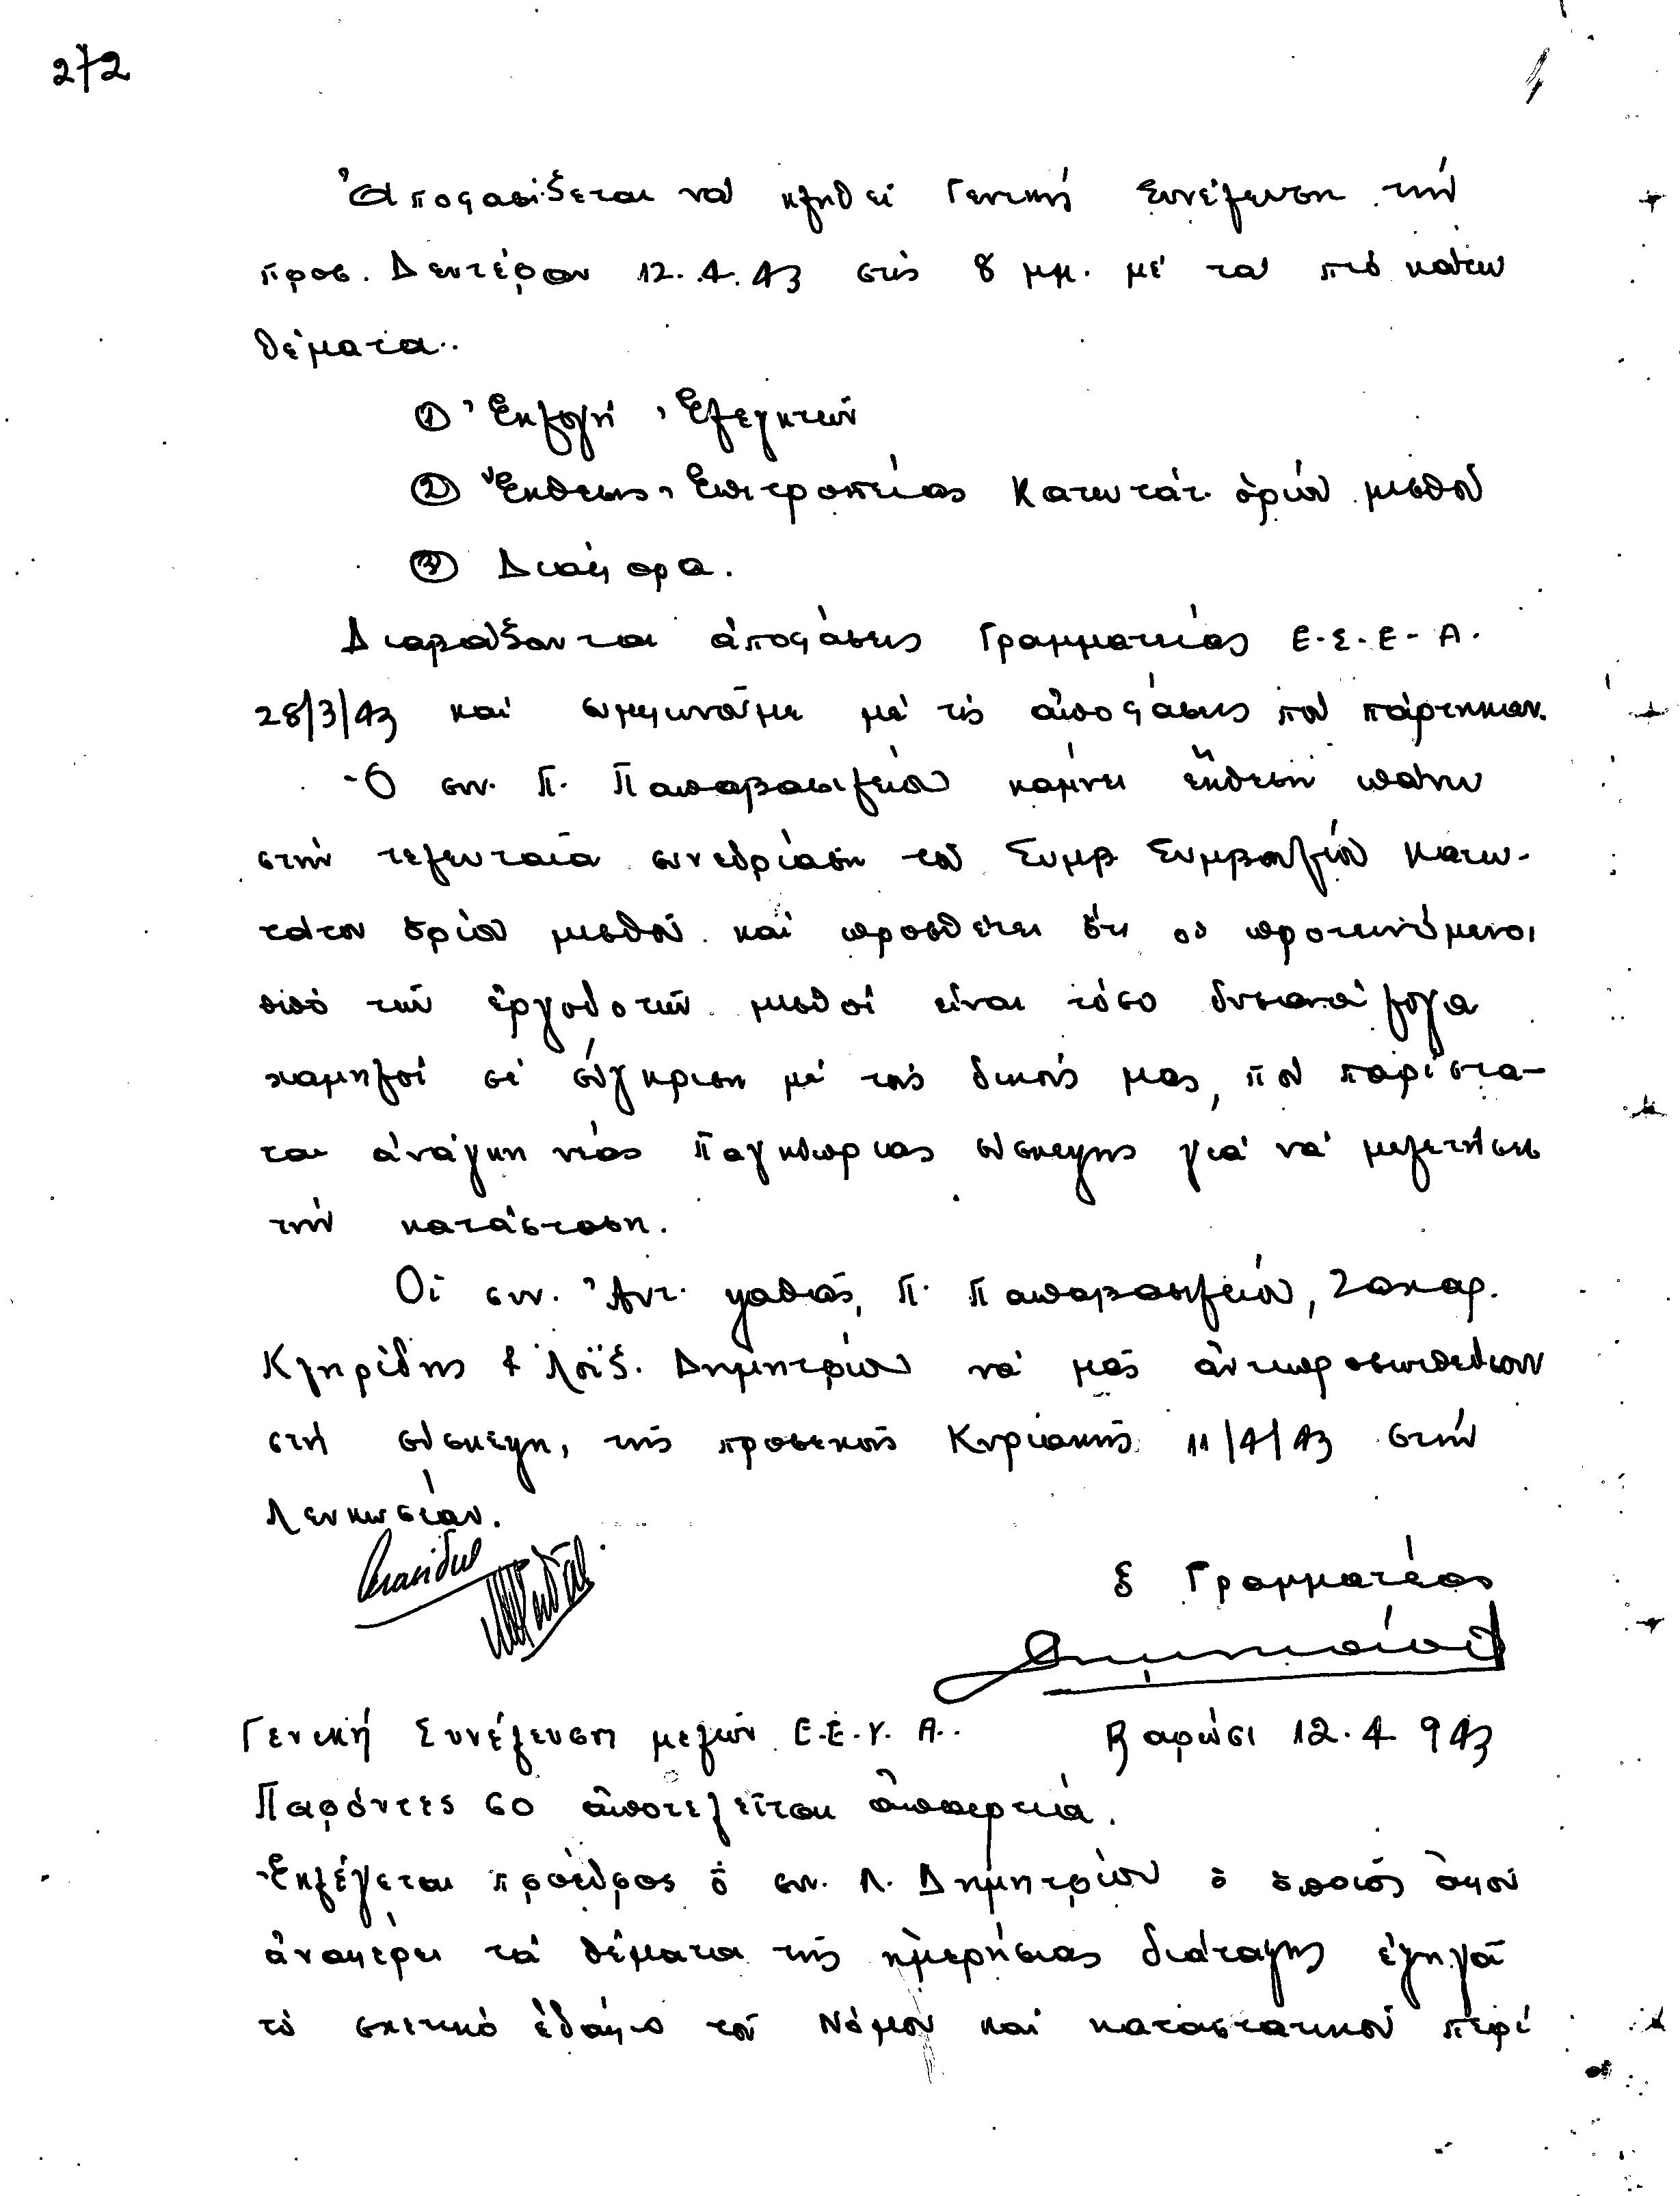 272
Ἀποφασίζεται νά κληθεῖ Γενική Συνέλευση τήν
προσ. Δευτέραν 12.4.43 στίς 8 μμ. μέ τά πιό κάτω
θέματα.
① Ἐκλογή Ἐλεγκτῶν
② Ἔκθεσις Ἐπιτροπείας Κατωτάτ. ὁρίου μισθοῦ
③ Διάφορα.
Διαβάζονται ἀποφάσεις Γραμματείας Ε.Σ.Ε.Α.
28/3/43 καί συμφωνοῦμε μέ τίς ἀποφάσεις πού πάρτηκαν.
Ὁ συν. Π. Παπαβασιλείου κάμνει ἔκθεση πάνω
στήν τελευταία συνεδρίαση τοῦ Συμβ Συμβουλίου Κατω-
τάτου ὁρίου μισθοῦ καί προσθέτει ὅτι οἱ προτεινόμενοι
ἀπό τῶν ἐργοδοτῶν μισθοί εἶναι τόσο δυσανάλογα
χαμηλοί σέ σύγκριση μέ τούς δικούς μας, πού παρίστα-
ται ἀνάγκη νέας Παγκύπριας σύσκεψης γιά νά μελετήσει
τήν κατάσταση.
Οἱ συν. Ἀντ. ψαθᾶς, Π. Παπαβασιλείου, Ζαχαρ.
Κληρίδης & Λοΐζ. Δημητρίου νά μᾶς ἀντιπροσωπεύσουν
στή σύσκεψη, τῆς προσεχοῦς Κυριακῆς 11/4/43 στήν
Λευκωσίαν.
ὁ Γραμματέας
Δημητρίου
Γενική Συνέλευση μελῶν Ε.Ε.Υ.Α. Βαρώσι 12.4.943
Παρόντες 60 ἀποτελεῖται ἀπαρτιά.
Ἐκλέγεται πρόεδρος ὁ συν. Λ. Δημητρίου ὁ ὁποῖος ἀφοῦ
ἀναφέρει τά θέματα τῆς ἡμερήσιας διάταξης ἐξηγᾶ
τό σχετικό ἐδάφιο τοῦ Νόμου καί καταστατικοῦ περί